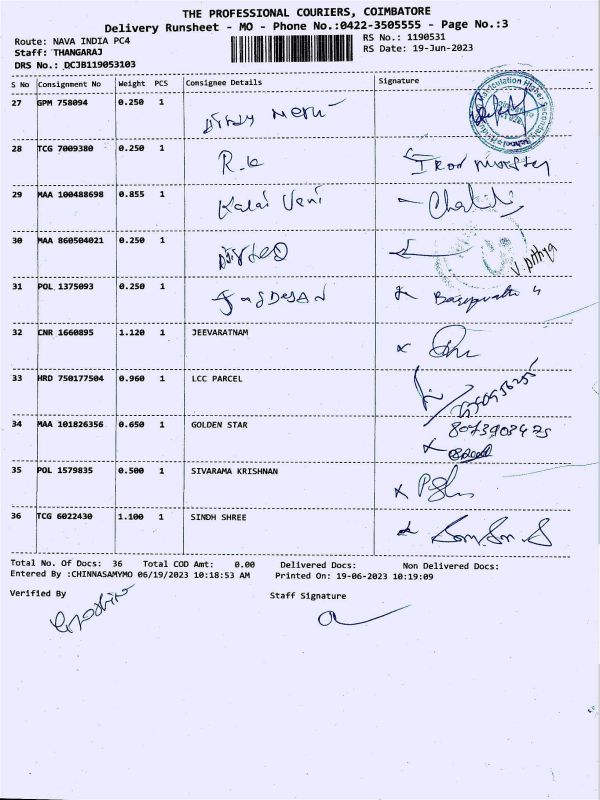 THE PROFESSIONAL COURIERS, COIMBATORE
Delivery Runsheet - MO - Phone No.:0422-3505555 - Page No.:3
Route: NAVA INDIA PC4
RS No.: 1190531
Staff: THANGARAJ
RS Date: 19-Jun-2023
DRS No.: DCJB119053103
S No Consignment No Weight PCS Consignee Details Signature
27 GPM 758094 0.250 1
28 TCG 7009380 0.250 1 R.k
29 MAA 100488698 0.855 1 Kalai Veni
30 MAA 860504021 0.250 1
31 POL 1375093 0.250 1
32 CNR 1660895 1.120 1 JEEVARATNAM
33 HRD 750177504 0.960 1 LCC PARCEL
34 MAA 101826356 0.650 1 GOLDEN STAR
35 POL 1579835 0.500 1 SIVARAMA KRISHNAN
36 TCG 6022430 1.100 1 SINDH SHREE
Total No. Of Docs: 36 Total COD Amt: 0.00 Delivered Docs: Non Delivered Docs:
Entered By :CHINNASAMYMO 06/19/2023 10:18:53 AM Printed On: 19-06-2023 10:19:09
Verified By Staff Signature